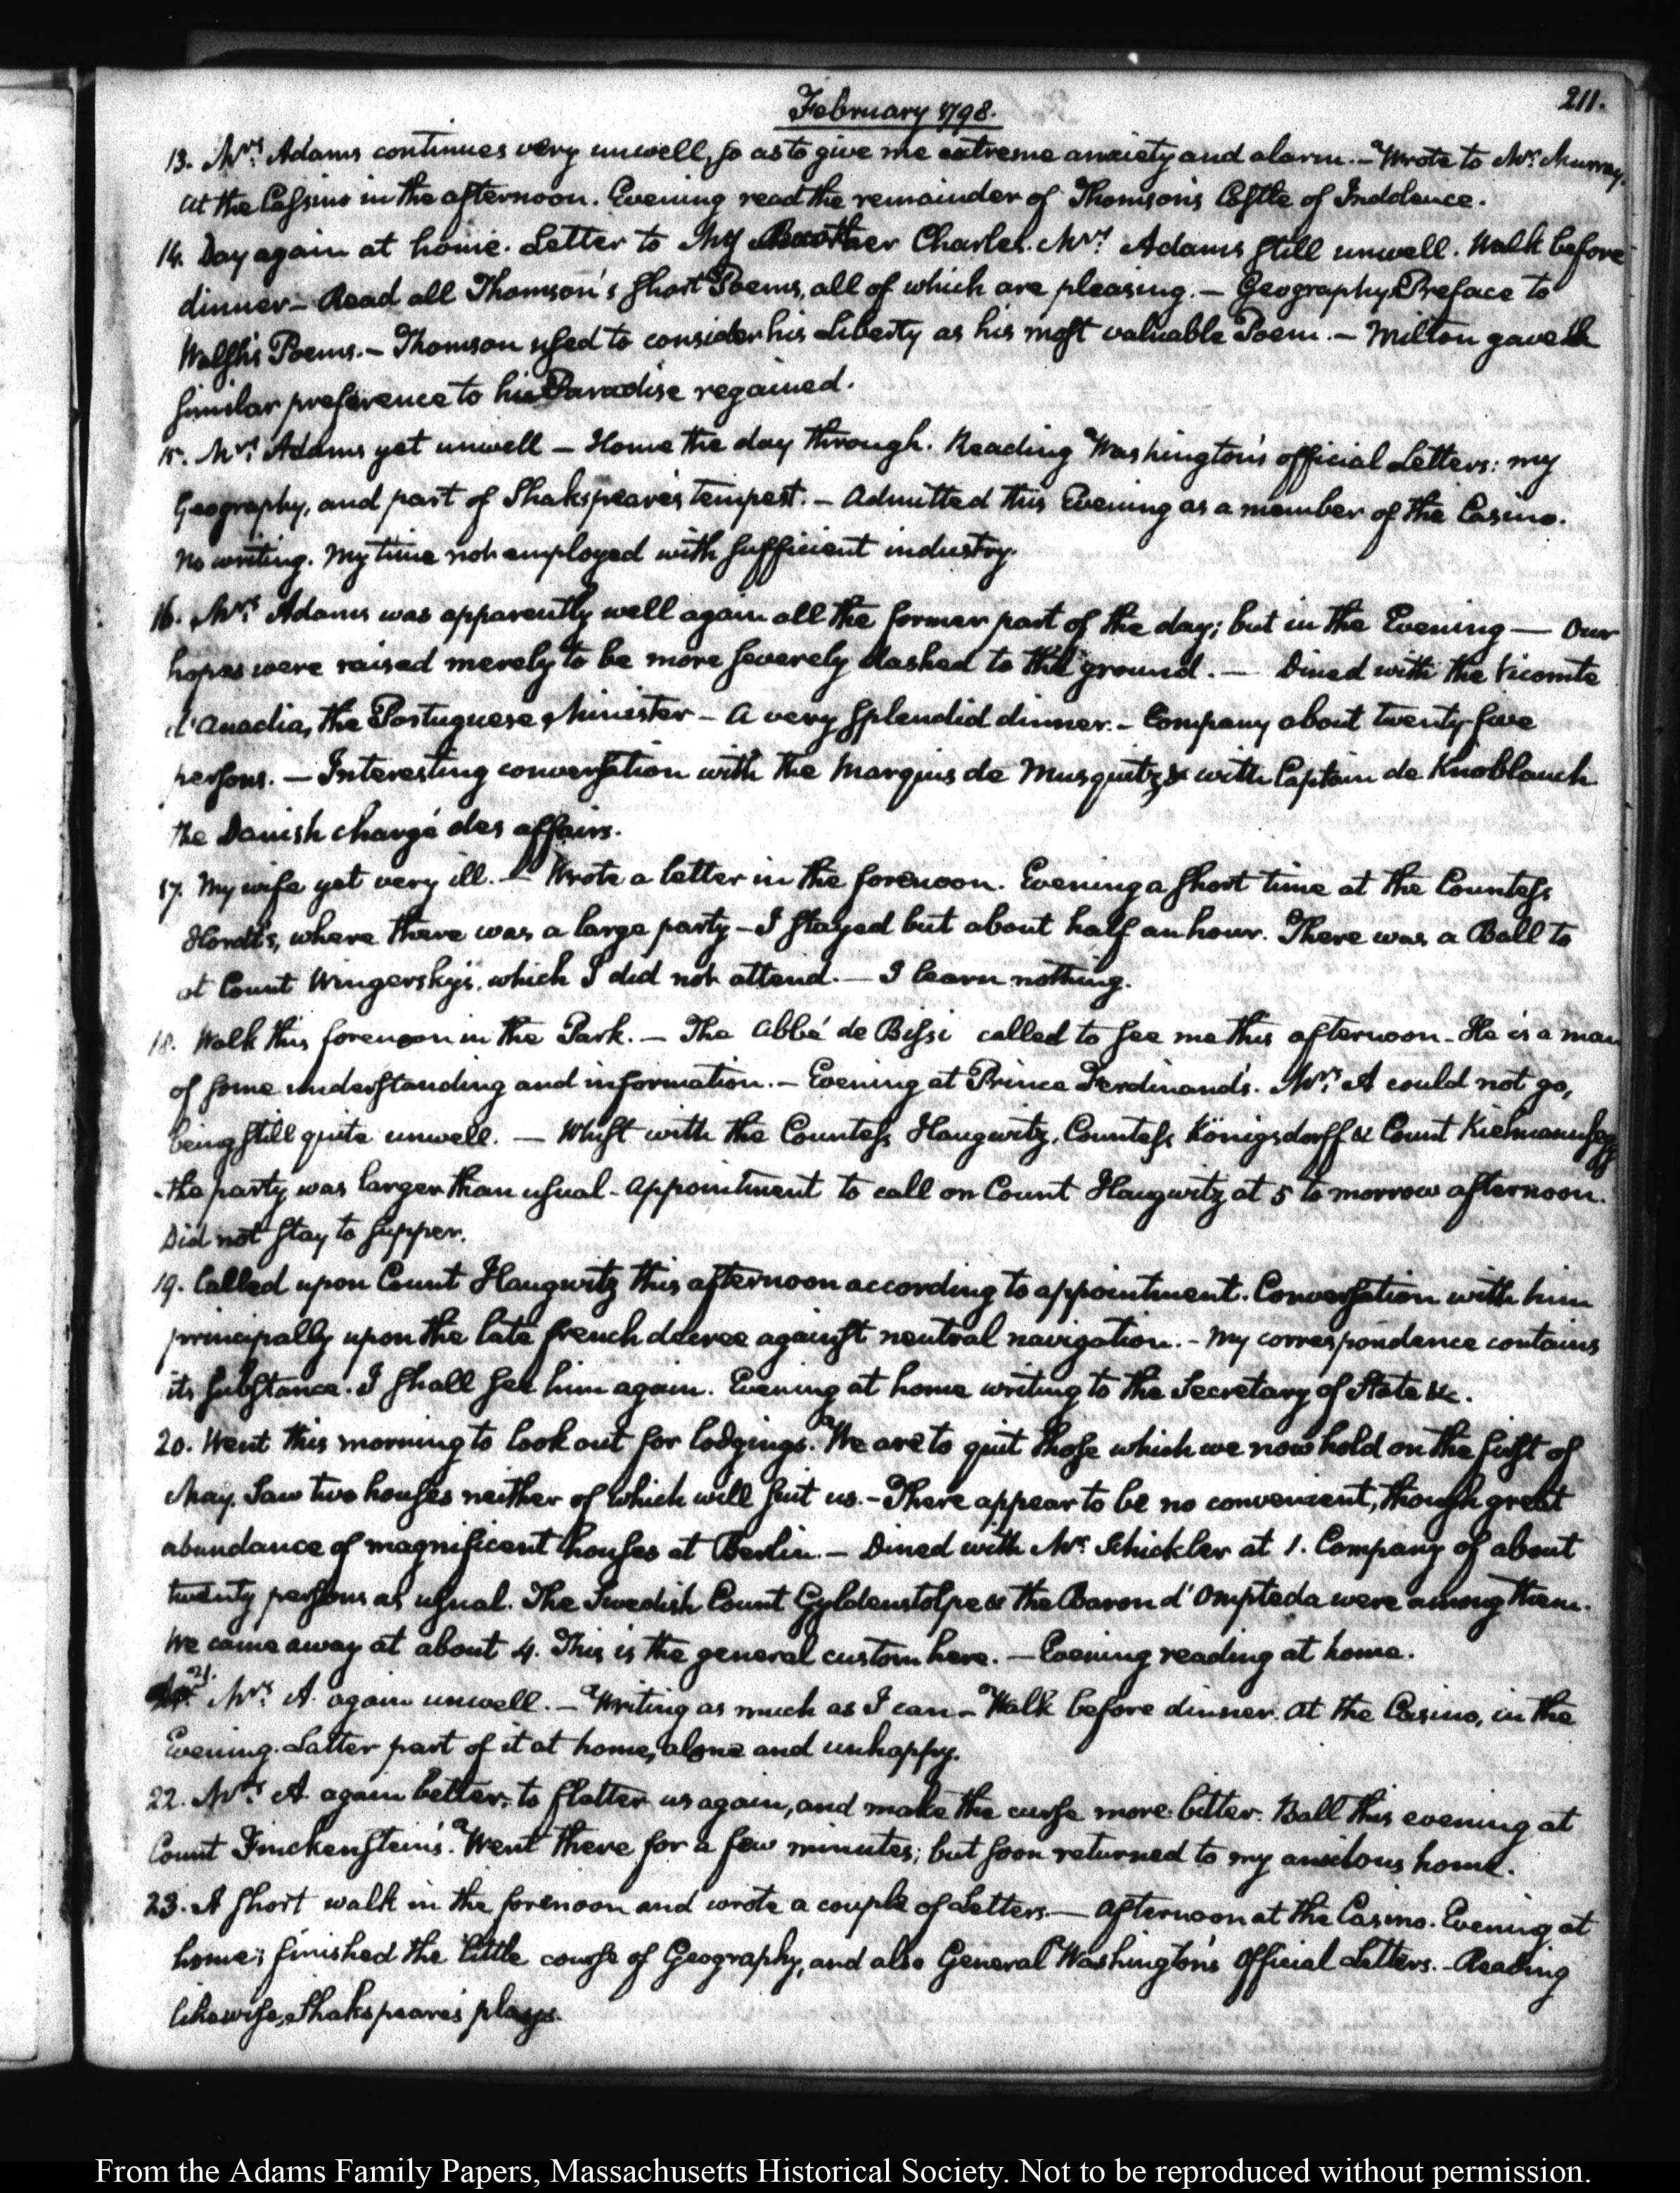 211.
February 1798.
13. Mrs. Adams continues very unwell, so as to give me extreme anxiety and alarm. – Wrote to Mr. Murray.
At the Cassino in the afternoon. Evening read the remainder of Thomson's Castle of Indolence.
14. Day again at home. Letter to My Brother Charles. Mrs. Adams still unwell. Walk before
dinner – Read all Thomson's short Poems, all of which are pleasing. – Geography. Preface to
Walsh's Poems. – Thomson used to consider his Liberty as his most valuable Poem. – Milton gave the
similar preference to his Paradise regained.
15. Mrs. Adams yet unwell – Home the day through. Reading Washington's official Letters: my
Geography, and part of Shakspeare's tempest. – Admitted this Evening as a member of the Casino.
No writing. My time not employed with sufficient industry.
16. Mrs. Adams was apparently well again all the former part of the day; but in the Evening — Our
hopes were raised merely to be more severely dashed to the ground. — Dined with the Vicomte
d'Anadia, the Portuguese Minister – A very splendid dinner. – Company about twenty-five
persons. — Interesting conversation with the Marquis de Musquitz & with Captain de Knoblauch
the Danish chargé des affairs.
17. My wife yet very ill. – Wrote a letter in the forenoon. Evening a short time at the Countess
Hordt's, where there was a large party – I stayed but about half an hour. There was a Ball to
at Count Wingersky's, which I did not attend. — I learn nothing.
18. Walk this forenoon in the Park. — The Abbé de Bissi called to see me this afternoon – He is a man
of some understanding and information. – Evening at Prince Ferdinand's. Mrs. A could not go,
being still quite unwell. — Whist with the Countess Haugwitz, Countess Königsdorff & Count Kielmansegg
the party was larger than usual – Appointment to call on Count Haugwitz at 5 to morrow afternoon.
Did not stay to supper.
19. Called upon Count Haugwitz this afternoon according to appointment. Conversation with him
principally upon the late french decree against neutral navigation. – My correspondence contains
its substance. I shall see him again. Evening at home writing to the Secretary of State &c.
20. Went this morning to look out for lodgings. We are to quit those which we now hold on the first of
May. Saw two houses neither of which will suit us. – There appear to be no convenient, though great
abundance of magnificent houses at Berlin. – Dined with Mr. Schickler at 1. Company of about
twenty persons as usual. The Swedish Count Gyldenstolpe & the Baron d'Ompteda were among them.
We came away at about 4. This is the general custom here. — Evening reading at home.
21. Mrs. A. again unwell. – Writing as much as I can – Walk before dinner. At the Casino, in the
Evening. Latter part of it at home, alone and unhappy.
22. Mrs. A. again better, to flatter us again, and make the curse more bitter. Ball this evening at
Count Finckenstein's. Went there for a few minutes; but soon returned to my anxious home.
23. A short walk in the forenoon and wrote a couple of Letters. — Afternoon at the Casino. Evening at
home; finished the little course of Geography, and also General Washington's Official Letters. – Reading
likewise, Shakspeare's plays.
From the Adams Family Papers, Massachusetts Historical Society. Not to be reproduced without permission.